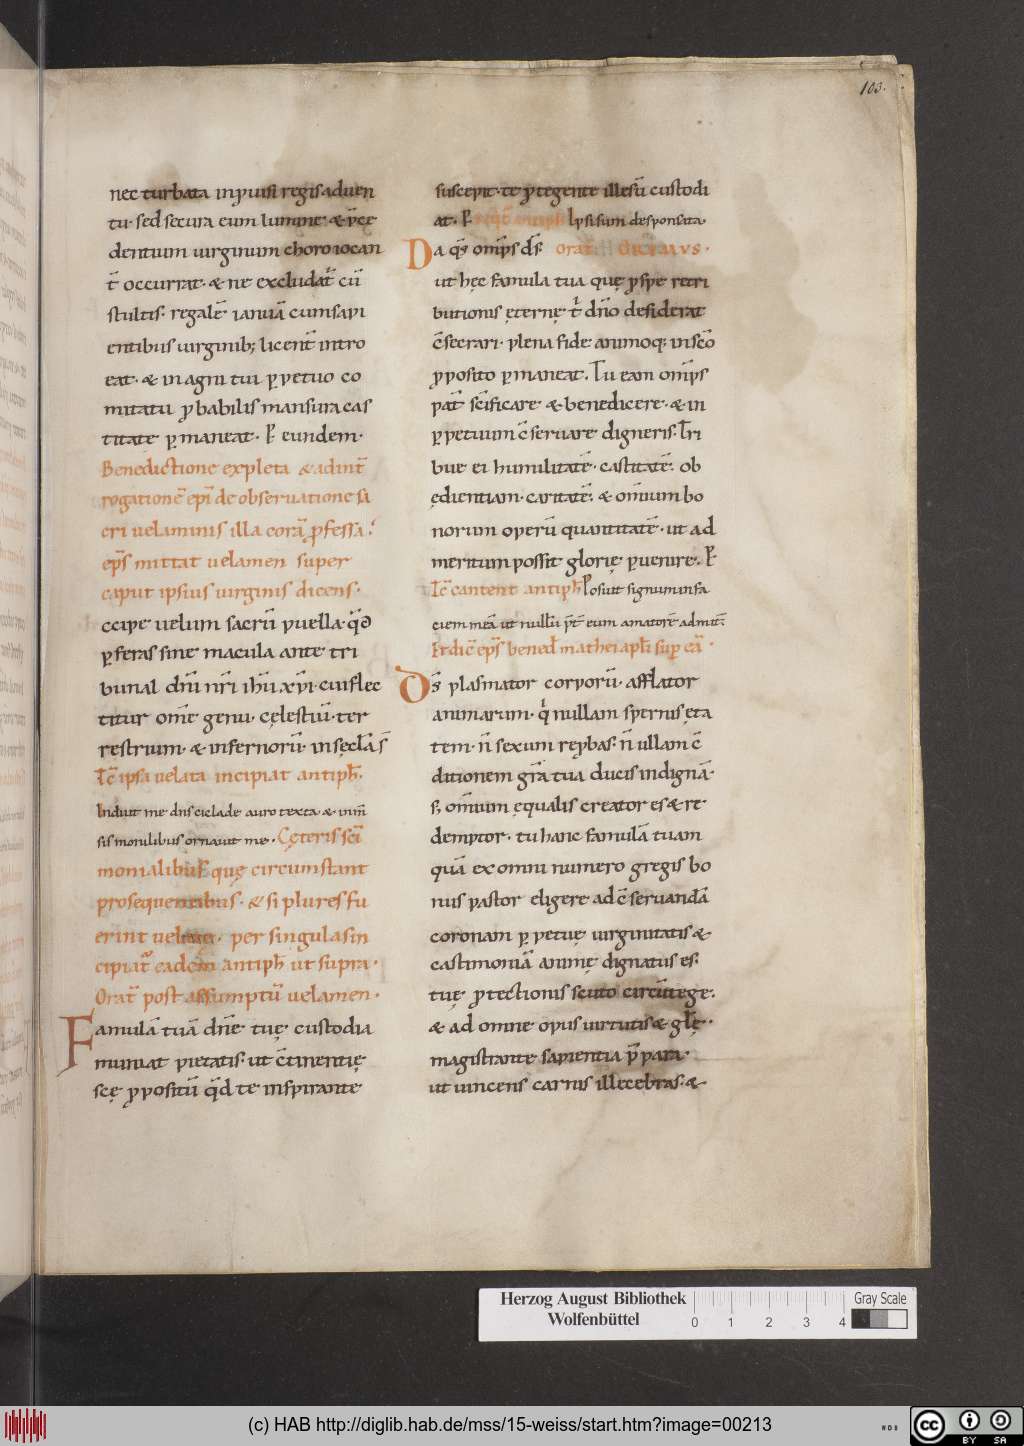 103.
nec turbata inpuisi regis aduen
tu· sed secura cum lumine· & p̄ce
dentium uirginum choro iocan
t̄ occurrat· & ne excludat̄ cū
stultis· regalē ianuā cum sapi
entibus uirginib; licent̄ intro
eat· & in agni tui ꝑpetuo co
mitatu ꝓbabilis mansura cas
titate ꝑmaneat· P̄ eundem·
Benedictione expleta & ad int̄
rogationē ep̄i de obseruatione sa
cri uelaminis illa corā ꝓfessa·
ep̄s mittat uelamen super
caput ipsius uirginis dicens·
ccipe uelum sacrū puella· q̄d
ꝑferas sine macula ante tri
bunal dn̄i nr̄i ihū xp̄i· cui flec
titur om̄e genu· cęlestiū· ter
restrium· & infernorū· in sęcl̄a s̄
Tc̄ ipsa uelata incipiat antiph̄·
Induit me dn̄s ciclade auro texta· & inm̄
sis monilibus ornauit me· Cęteris scī
monialibus quę circumstant
prosequentibus· & si plures fu
erint uelatę· per singulas in
cipiat̄ eadem antiph̄ ut supra·
Orat̄ post assumptū uelamen·
Famulā tuā dn̄e tuę custodia
muniat pietatis· ut c̄tinentię
scę ꝓpositū q̄d te inspirante
suscepit· te ꝓtegente illesū custodi
at· P̄ Ipsi sum desponsata·
Da q̄s omīps d̄s· Orat̄
ut hęc famula tua quę ꝓ spe retri
butionis ęternę t̄ dn̄o desiderat
c̄secrari· plena fide animoq; in sc̄o
ꝓposito ꝑmaneat. Tu eam omīps
pat̄ scīficare & benedicere· & in
ꝑpetuum c̄seruare digneris. Tri
bue ei humilitatē· castitatē· ob
ędientiam· caritatē· & om̄ium bo
norum operū quantitatē· ut ad
meritum possit glorię ꝑuenire· P̄
Tc̄ cantent antiph̄ Posuit signum in fa
ciem meā ut nullū p̄t eum amatorē admittā
Et dic̄ ep̄s bened̄ mathei apl̄i suꝑ eā·
Ds̄ plasmator corporū· afflator
animarum· q̄ nullam spernis ęta
tem· n̄ sexum repbas· n̄ ullam c̄
ditionem gr̄a tua ducis indignā·
s; om̄ium ęqualis creator es & re
demptor· tu hanc famulā tuam
quā ex omni numero gregis bo
nus pastor eligere ad c̄seruandā
coronam ꝑpetuę uirginitatis &
castimoniā animę dignatus es·
tuę ꝓtectionis scuto circūtege·
& ad omne opus uirtutis & gl̄ę·
magistrante sapientia p̄para·
ut uincens carnis illecebras· &
Herzog August Bibliothek
Wolfenbüttel
Gray Scale
0 1 2 3 4
(c) HAB http://diglib.hab.de/mss/15-weiss/start.htm?image=00213
cc BY SA